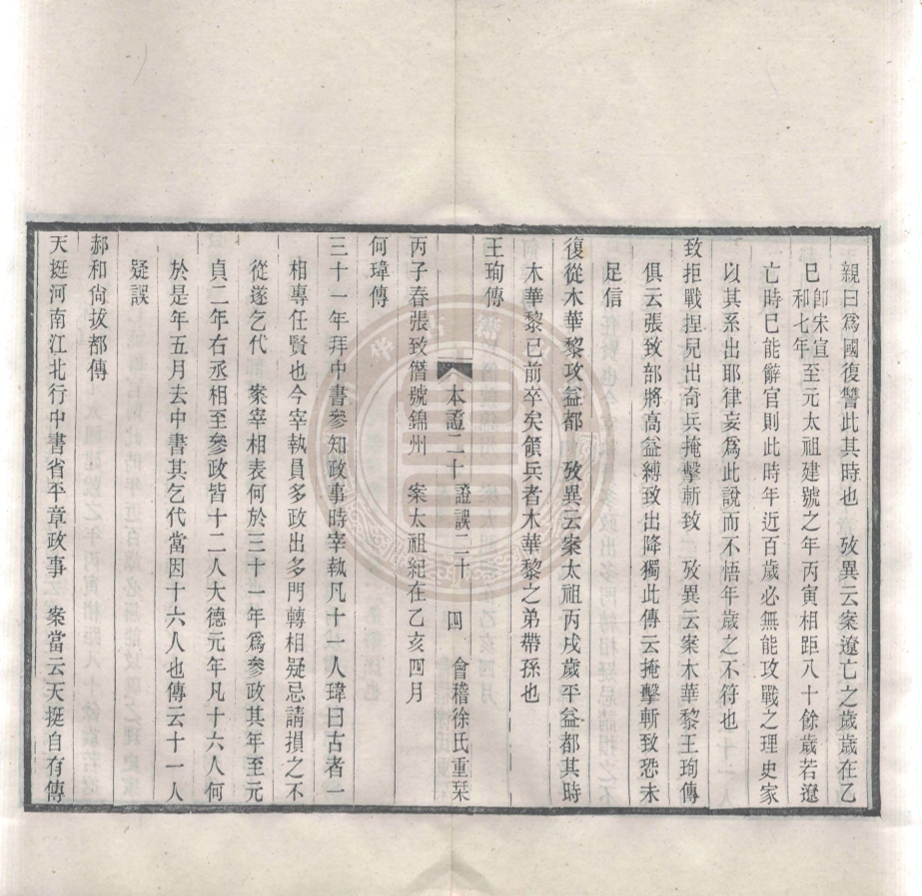 親曰爲國復讐此其時也　攷異云案遼亡之歲歲在乙
巳卽宋宣和七年至元太祖建號之年丙寅相距八十餘歲若遼
亡時已能辭官則此時年近百歲必無能攻戰之理史家
以其系出耶律妄爲此說而不悟年歲之不符也
致拒戰捏兒出奇兵掩擊斬致　攷異云案木華黎王珣傳
俱云張致部將高益縛致出降獨此傳云掩擊斬致恐未
足信
復從木華黎攻益都　攷異云案太祖丙戌歲平益都其時
木華黎已前卒矣領兵者木華黎之弟帶孫也
王珣傳
本證二十證誤二十　四　會稽徐氏重栞
丙子春張致僭號錦州　案太祖紀在乙亥四月
何瑋傳
三十一年拜中書參知政事時宰執凡十一人瑋曰古者一
相專任賢也今宰執員多政出多門轉相疑忌請損之不
從遂乞代　案宰相表何於三十一年爲參政其年至元
貞二年右丞相至參政皆十二人大德元年凡十六人何
於是年五月去中書其乞代當因十六人也傳云十一人
疑誤
郝和尙拔都傳
天挺河南江北行中書省平章政事　案當云天挺自有傳